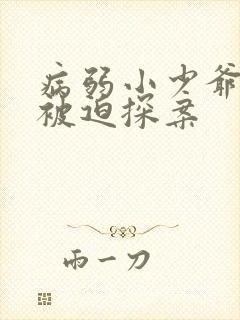 病弱小少爷
被迫探案
雨一刀